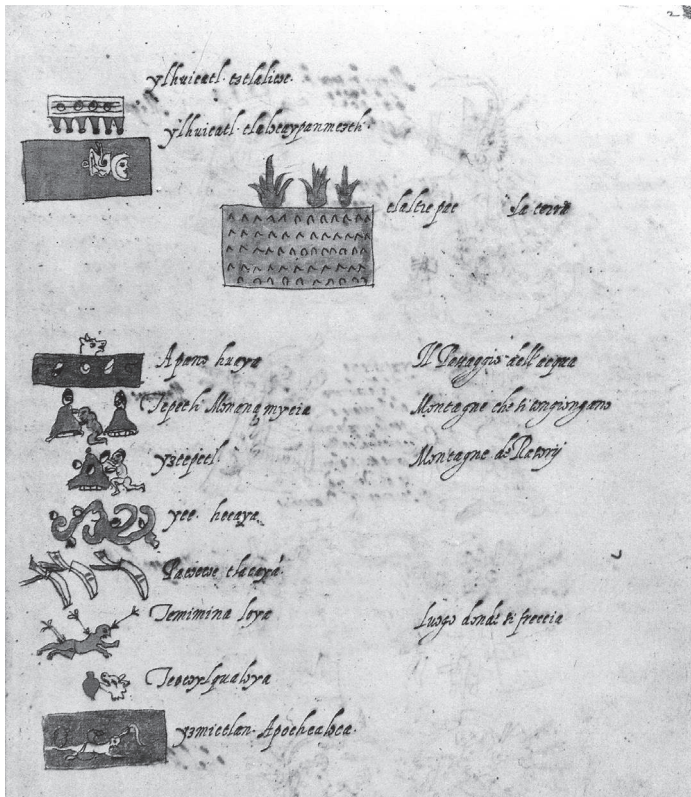 2
ylhuicatl. tztlalicoe.
ylhuicatl. tlalocaypanmeztli.
tlalticpac la terra
Apano huaya Il Passaggio dell'acqua
Tepetli Monanamycia Montagne che si congiongano
yztepetl Montagne de Rasorij
yee. hecaya.
Pacoecoe tlacaya.
Temimina loya Luogo dondi si freccia
Teocoylqualoya
yzmictlan. Apochcaloca.